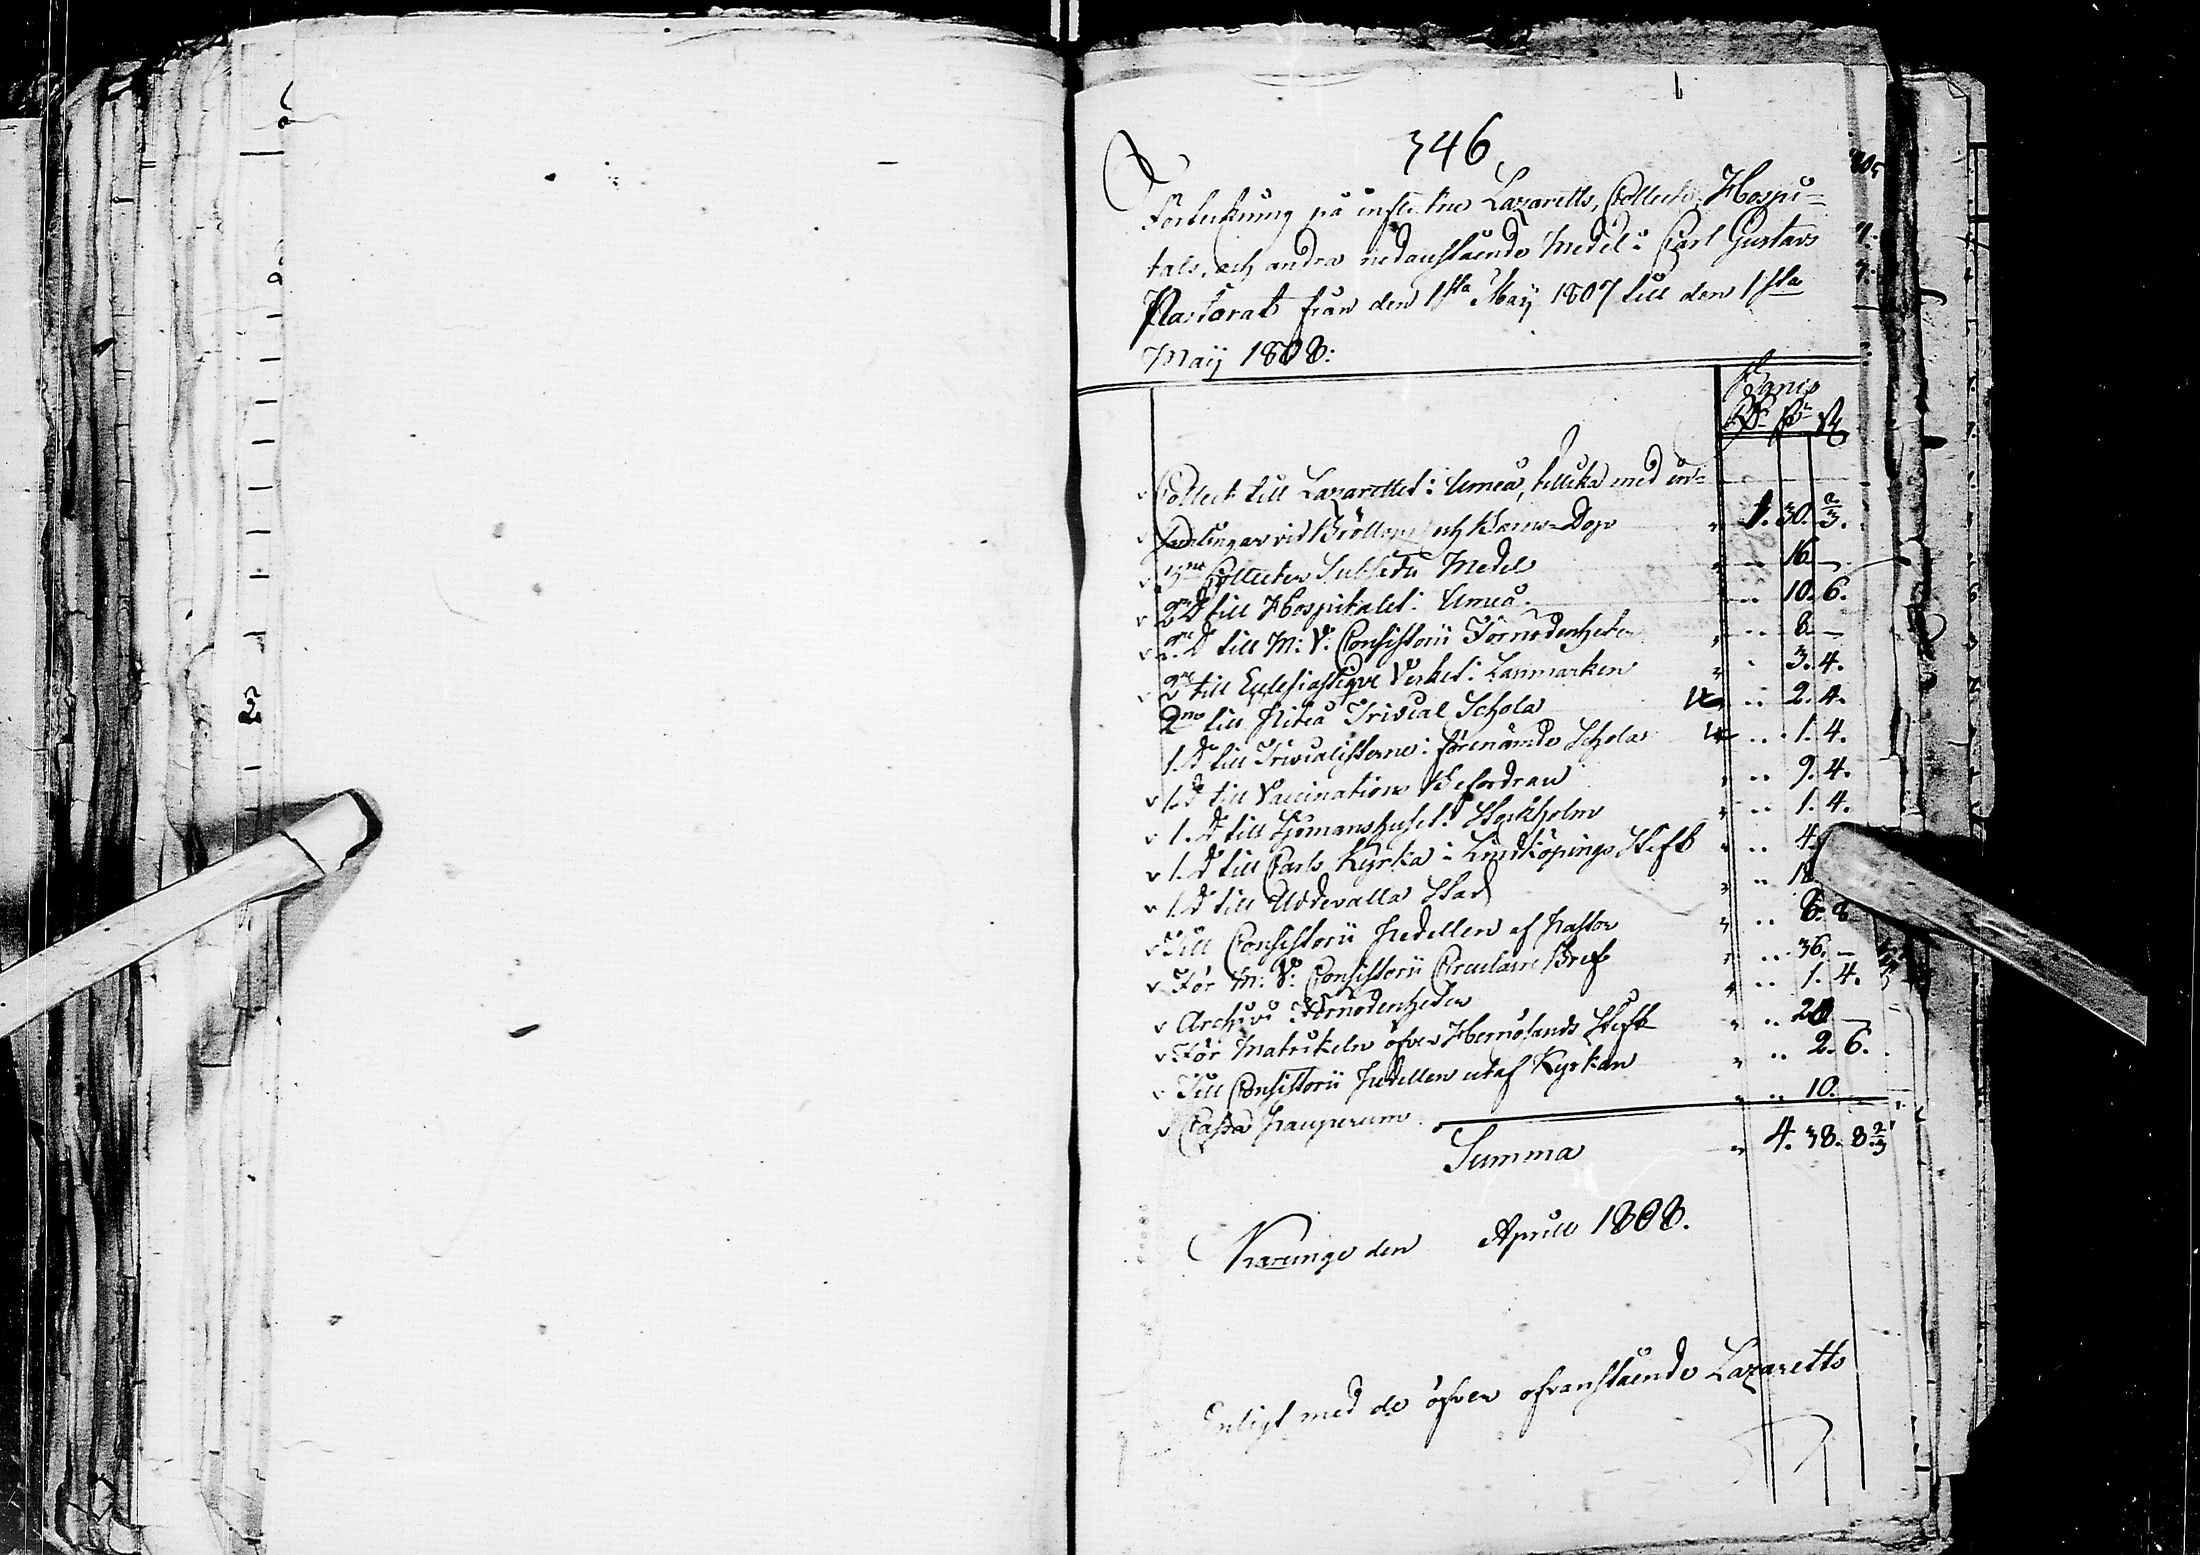 346
Förtekning på influtne Lazaretts, Collect, Hospi-
tals, och andra nedanstående Medel i Carl Gustavs
Pastorat från den 1sta Maij 1807 till den 1sta
Maij 1808:
Banco
Rd s rs
Collect till Lazarettet i Umeå, tillika med in-
samlingar vid Bröllop och Barns-Dop " 1. 30. 2/3.
Collecter Subsidii Medel " — 16. —
2ne Do till Hospitalet i Umeå " .. 10. 6.
2ne Do till M: V: Consistorii Förnödenheter " .. 8. —
2ne till Ecclesiastique Verket i Lapmarken " . 3. 4.
2ne till Piteå Trivial Schola .. 2. 4.
1. Do till Trivialisterne i förenämde Schola .. 1. 4.
1. Do till Vaccinations Befordran " .. 9. 4.
1. Do till Sjömanshuset i Stockholm " .. 1. 4.
1. Do till Carls Kyrka i Linköpings Stift " .. 4.
1. Do till Uddevalla Stad " .. 1
Till Consistorii Pedellen af Pastor " .. 6. 8
För M: V: Consistorii Circulaire Bref " .. 36. —
Archivi Förnödenheter " .. 1. 4.
För Matrikeln öfver Hernösands Stift " .. 20 —
Till Consistorii Pedellen utaf Kyrkan " .. 2. 6.
Cassa Pauperum " .. 10. —
Summa " 4. 38. 8. 2/3
Karungi den Aprill 1808.
Enligt med de öfver ofvanstående Lazaretts
2